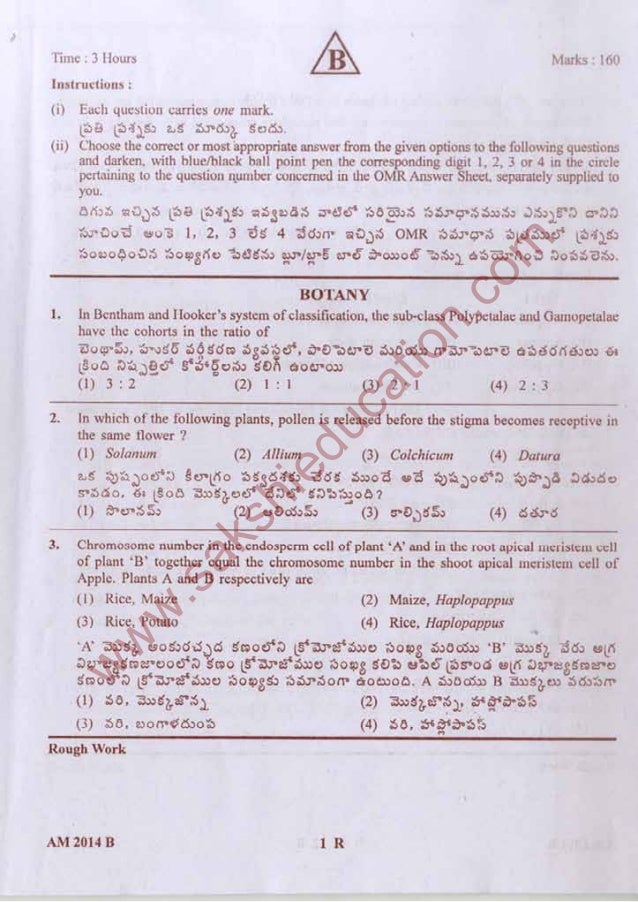 B
Time : 3 Hours Marks : 160
Instructions :
(i) Each question carries one mark.
ప్రతి ప్రశ్నకు ఒక మార్కు కలదు.
(ii) Choose the correct or most appropriate answer from the given options to the following questions
and darken, with blue/black ball point pen the corresponding digit 1, 2, 3 or 4 in the circle
pertaining to the question number concerned in the OMR Answer Sheet, separately supplied to
you.
దిగువ ఇచ్చిన ప్రతి ప్రశ్నకు ఇవ్వబడిన వాటిలో సరియైన సమాధానమును ఎన్నుకొని దానిని
సూచించే అంకె 1, 2, 3 లేక 4 వేరుగా ఇచ్చిన OMR సమాధాన పత్రములో ప్రశ్నకు
సంబంధించిన సంఖ్యగల పేటికను బ్లూ/బ్లాక్ బాల్ పాయింట్ పెన్ను ఉపయోగించి నింపవలెను.
BOTANY
1. In Bentham and Hooker's system of classification, the sub-class Polypetalae and Gamopetalae
have the cohorts in the ratio of
బెంథామ్, హుకర్ వర్గీకరణ వ్యవస్థలో, పాలిపెటాలె మరియు గామోపెటాలె ఉపతరగతులు ఈ
క్రింది నిష్పత్తిలో కోహర్ట్‌లను కలిగి ఉంటాయి
(1) 3 : 2 (2) 1 : 1 (3) 2 : 1 (4) 2 : 3
2. In which of the following plants, pollen is released before the stigma becomes receptive in
the same flower ?
(1) Solanum (2) Allium (3) Colchicum (4) Datura
ఒక పుష్పంలోని కీలాగ్రం పక్వదశకు చేరక ముందే అదే పుష్పంలోని పుప్పొడి విడుదల
కావడం. ఈ క్రింది మొక్కలలో దేనిలో కనిపిస్తుంది?
(1) సొలానమ్ (2) ఆలియమ్ (3) కాల్చికమ్ (4) దతూర
3. Chromosome number in the endosperm cell of plant ‘A’ and in the root apical meristem cell
of plant ‘B’ together equal the chromosome number in the shoot apical meristem cell of
Apple. Plants A and B respectively are
(1) Rice, Maize (2) Maize, Haplopappus
(3) Rice, Potato (4) Rice, Haplopappus
‘A’ మొక్క అంకురచ్ఛద కణంలోని క్రోమోజోముల సంఖ్య మరియు ‘B’ మొక్క వేరు అగ్ర
విభాజ్యకణజాలంలోని కణం క్రోమోజోముల సంఖ్య కలిపి ఆపిల్ ప్రకాండ అగ్ర విభాజ్యకణజాల
కణంలోని క్రోమోజోముల సంఖ్యకు సమానంగా ఉంటుంది. A మరియు B మొక్కలు వరుసగా
(1) వరి, మొక్కజొన్న (2) మొక్కజొన్న, హాప్లోపాపస్
(3) వరి, బంగాళదుంప (4) వరి, హాప్లోపాపస్
Rough Work
AM 2014 B 1 R
www.sakshieducation.com